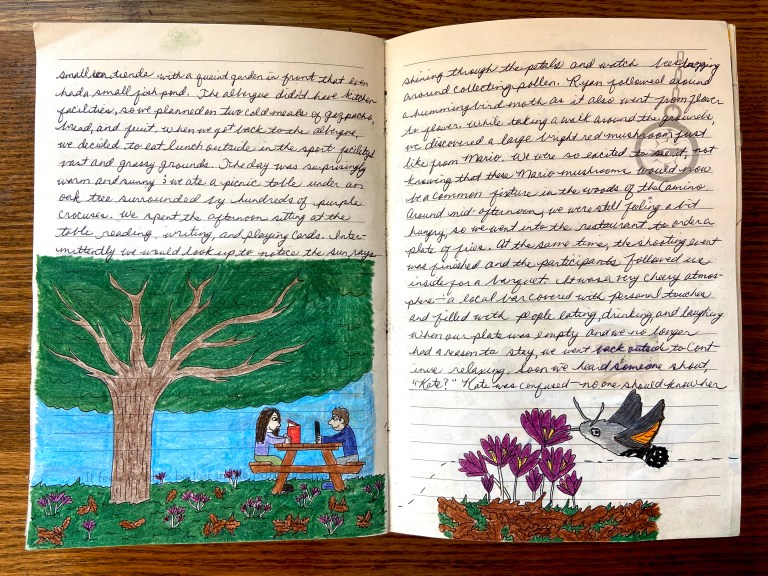 small tienda with a quaint garden in front that even
had a small fish pond. The albergue didn't have kitchen
facilities, so we planned on two cold meals of gazpacho,
bread, and fruit. When we got back to the albergue,
we decided to eat lunch outside in the sport facility's
vast and grassy grounds. The day was surprisingly
warm and sunny & we ate a picnic table under an
oak tree surrounded by hundreds of purple
crocuses. We spent the afternoon sitting at the
table reading, writing, and playing cards. Inter-
mittently we would look up to notice the sun rays
shining through the petals and watch bees buzzing
around collecting pollen. Ryan followed around
a hummingbird moth as it also went from flower
to flower. While taking a walk around the grounds,
we discovered a large bright red mushroom just
like from Mario. We were so excited to see it, not
knowing that these Mario mushrooms would now
be a common fixture in the woods of the Camino.
Around mid-afternoon, we were still feeling a bit
hungry, so we went into the restaurant to order a
plate of fries. At the same time, the shooting event
was finished and the participants followed us
inside for a banquet. It was a very cheery atmos-
phere - a local bar covered with personal touches
and filled with people eating, drinking, and laughing
When our plate was empty and we no longer
had a reason to stay, we went back outside to cont-
inue relaxing. Soon we heard someone shout,
"Kate?" Kate was confused - no one should know her